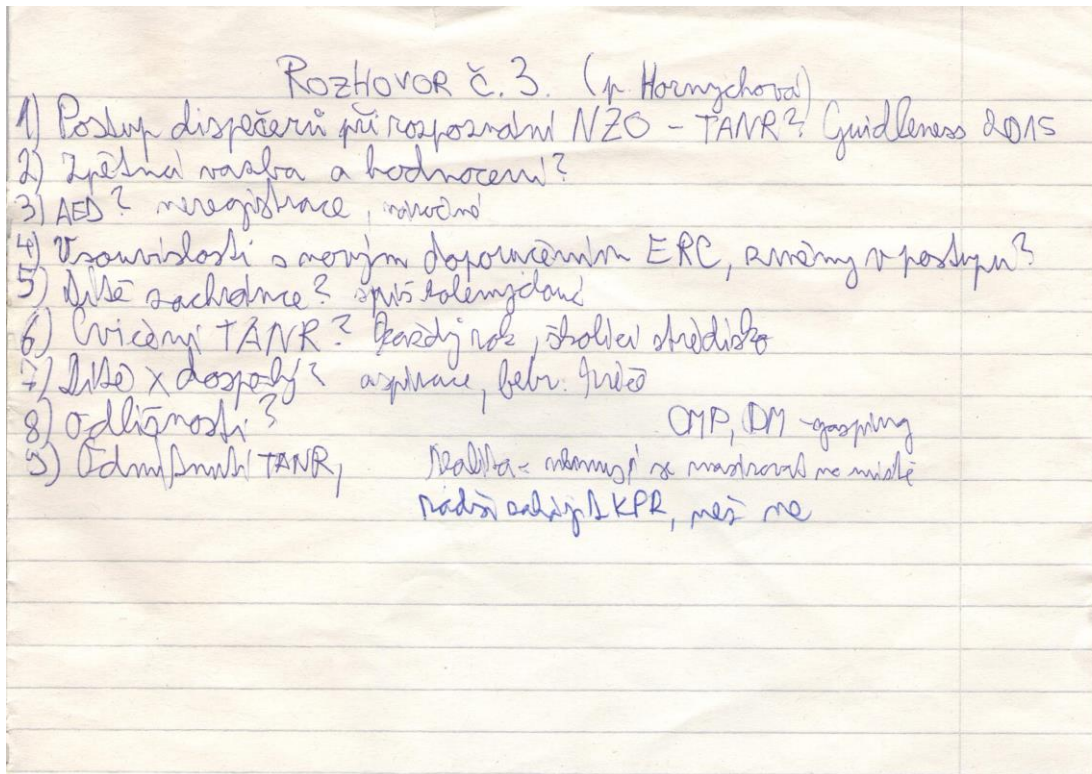 ROZHOVOR Č. 3. (p. Hornychová)
1) Postup dispečerů při rozpoznání NZO - TANR? Guidleness 2015
2) Zpětná vazba a hodnocení?
3) AED? neregistrace, náročné
4) V souvislosti s novým doporučením ERC, změny v postupu?
5) Dítě zachránce? spíš
6) Cvičení TANR? každý rok, školící středisko
7) Dítě x dospělý? aspirace, febr. křeče
8) Odlišnosti? CMP, DM - gasping
9) Odmítnutí TANR, Realita = nemusí se na místě
radši zahájit KPR, než ne